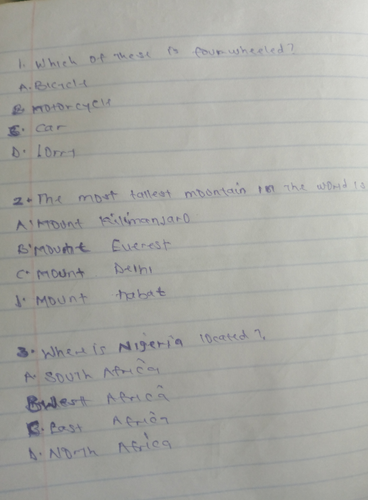 1. Which of these is fourwheeled?
A. Bicycle
B. Motorcycle
C. Car
D. Lorry
2. The most tallest mountain in the world is
A. Mount Kilimanjaro
B. Mount Everest
C. Mount Delhi
D. Mount
3. Where is Nigeria located?
A. South Africa
B. West Africa
C. East Africa
D. North Africa